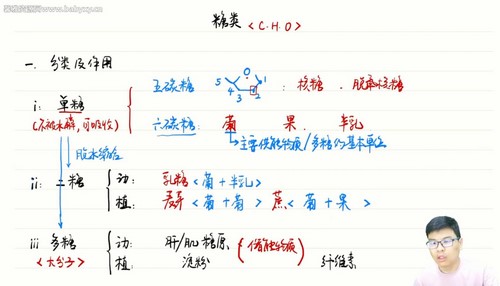 糖类 <C.H.O>
一. 分类及作用
五碳糖 5 4 3 2 1 : 核糖 . 脱氧核糖
i: 单糖
(不被水解,可吸收)
六碳糖: 葡 果 半乳
主要供能物质/多糖的基本单位
脱水缩合
ii: 二糖 动: 乳糖 <葡+半乳>
植: 麦芽 <葡+葡> 蔗 <葡+果>
iii 多糖 动: 肝/肌糖原 (储能物质)
<大分子> 植: 淀粉 纤维素